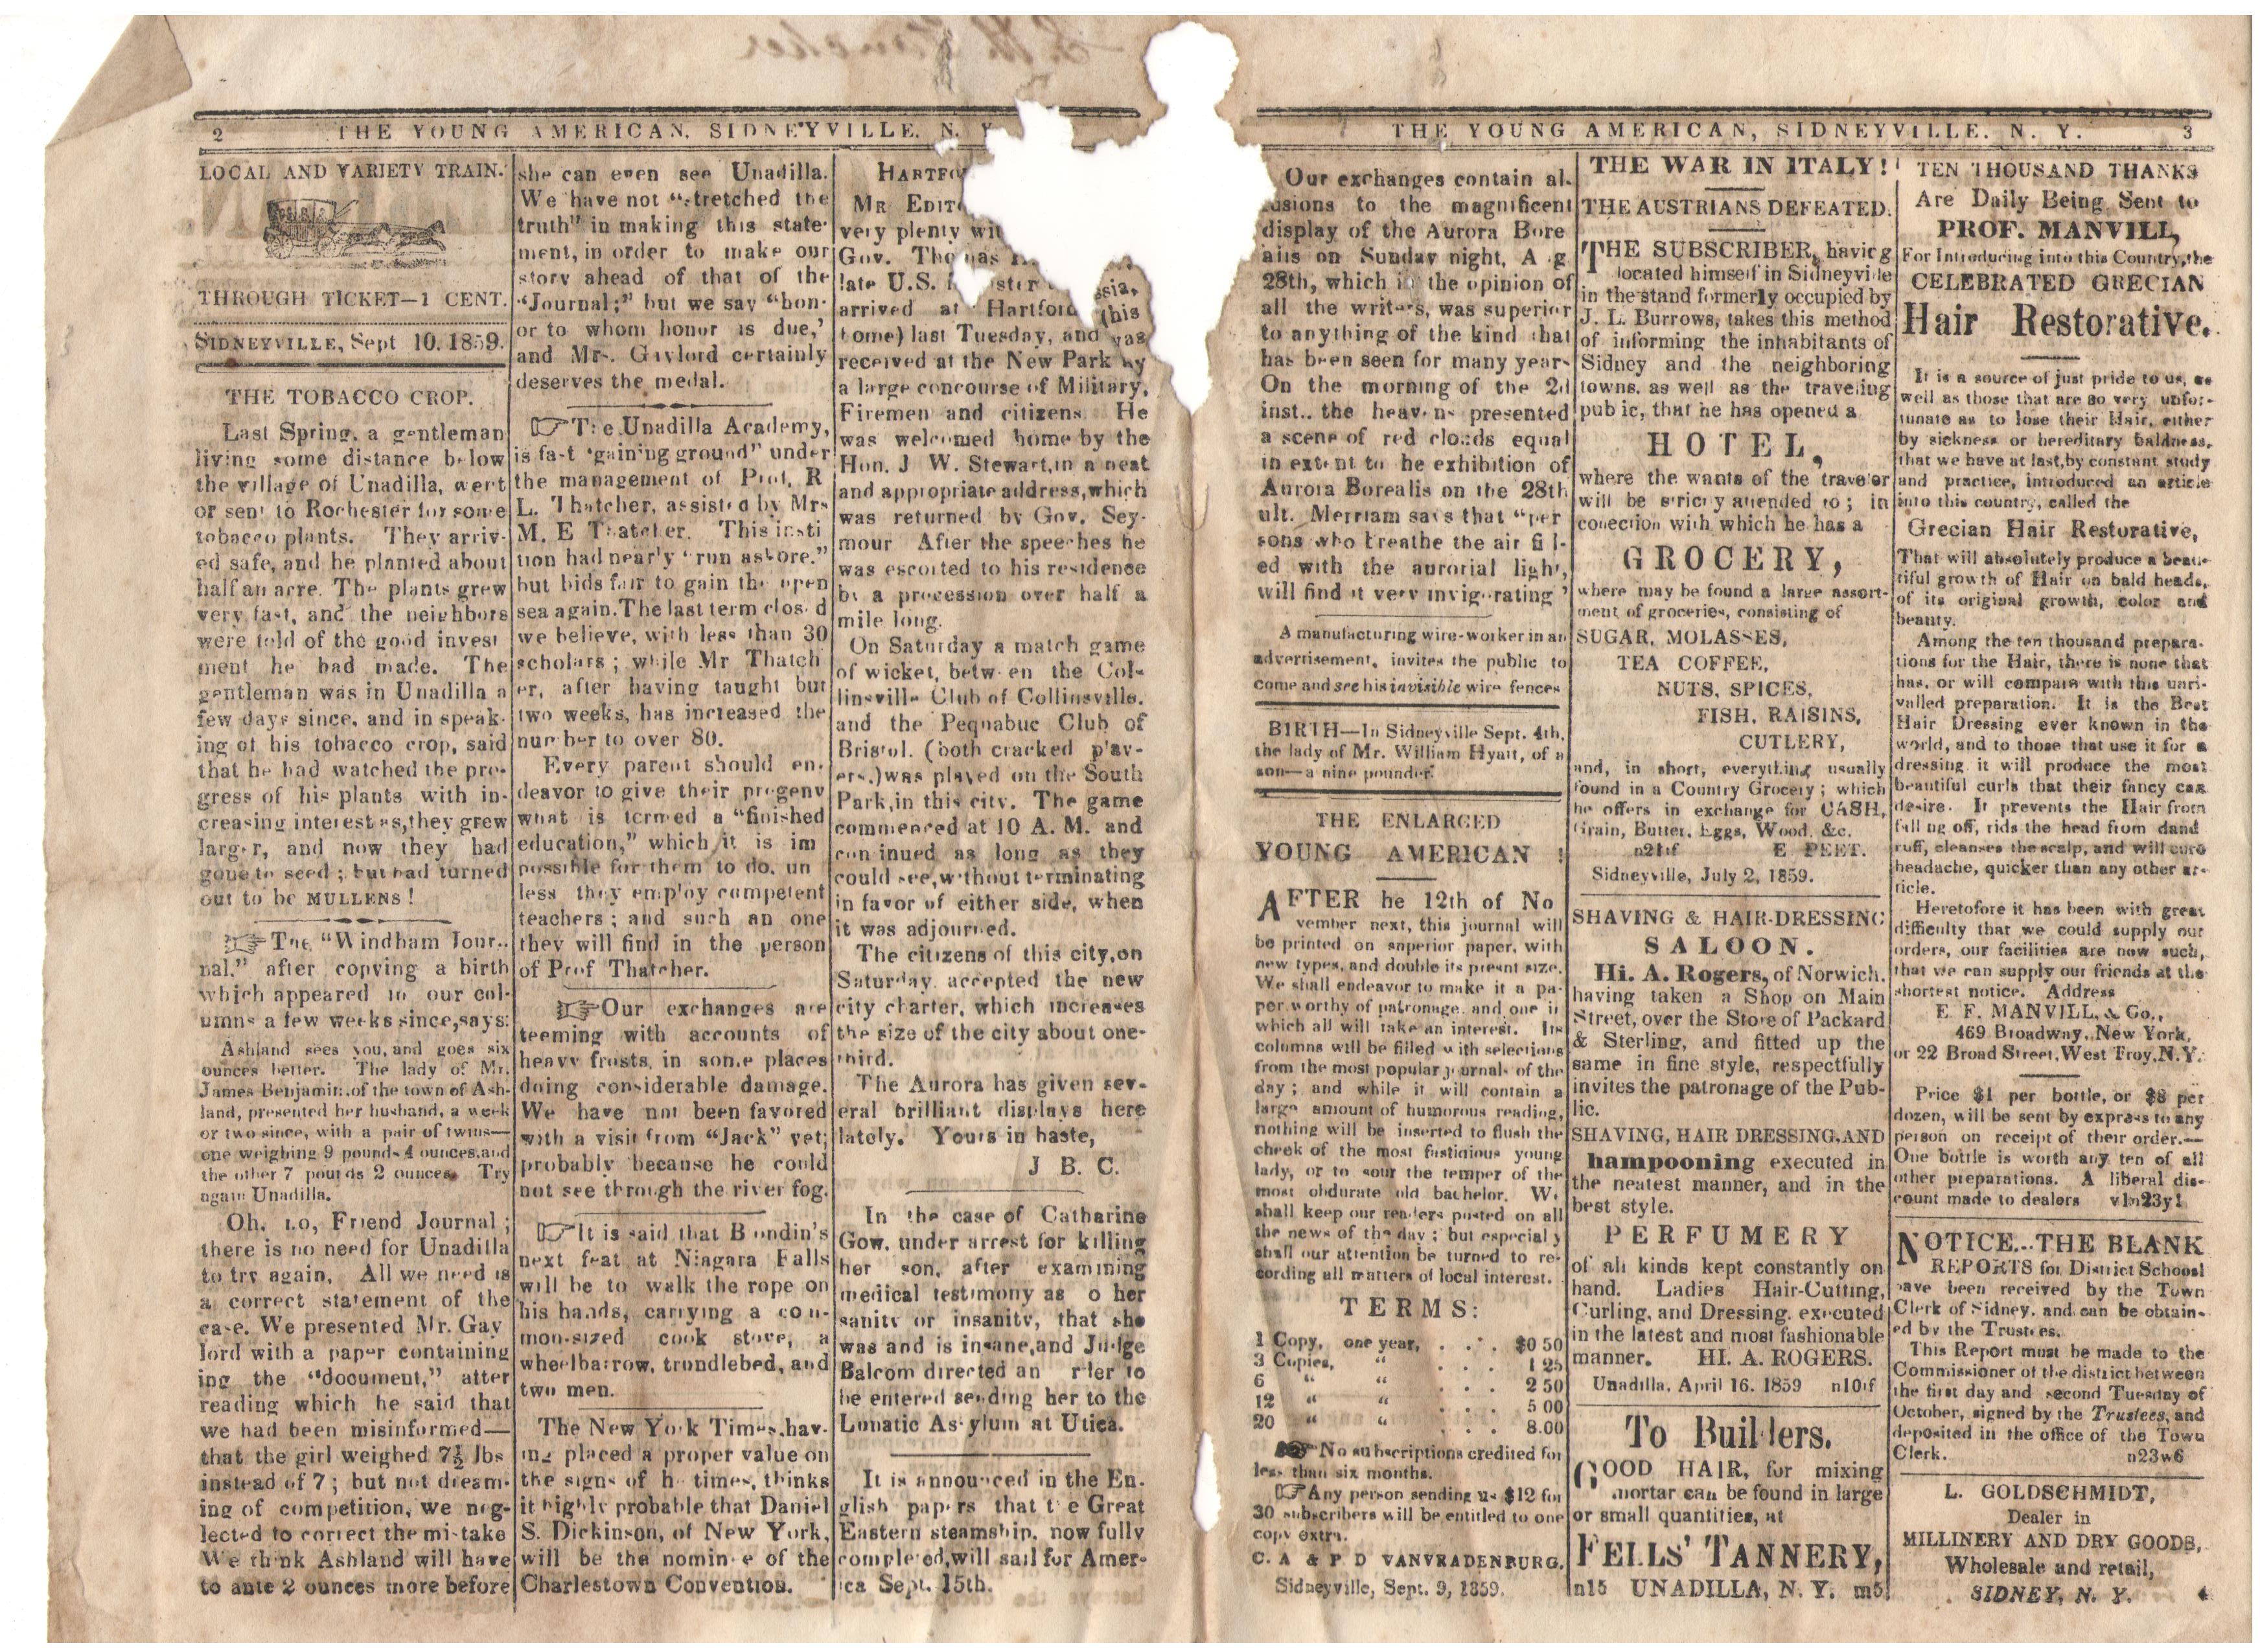 2 THE YOUNG AMERICAN, SIDNEYVILLE, N. Y
LOCAL AND VARIETY TRAIN.
THROUGH TICKET—1 CENT.
SIDNEYVILLE, Sept 10, 1859.
THE TOBACCO CROP.
Last Spring, a gentleman
living some distance below
the village of Unadilla, went
or sent to Rochester for some
tobacco plants. They arriv-
ed safe, and he planted about
half an acre. The plants grew
very fast, and the neighbors
were told of the good invest
ment he had made. The
gentleman was in Unadilla a
few days since, and in speak-
ing of his tobacco crop, said
that he had watched the pro-
gress of his plants with in-
creasing interest as,they grew
larger, and now they had
gone to seed ; but had turned
out to be MULLENS !
☞The "Windham Jour-
nal," after copying a birth
which appeared in our col-
umns a few weeks since,says:
Ashland sees you, and goes six
ounces better. The lady of Mr.
James Benjamin,of the town of Ash-
land, presented her husband, a week
or two since, with a pair of twins—
one weighing 9 pounds 4 ounces,and
the other 7 pounds 2 ounces. Try
again Unadilla.
Oh, no, Friend Journal ;
there is no need for Unadilla
to try again. All we need is
a correct statement of the
case. We presented Mr. Gay
lord with a paper containing
ing the "document," after
reading which he said that
we had been misinformed—
that the girl weighed 7½ lbs
instead of 7 ; but not dream-
ing of competition, we neg-
lected to correct the mistake
We think Ashland will have
to ante 2 ounces more before
she can even see Unadilla.
We have not "stretched the
truth" in making this state-
ment, in order to make our
story ahead of that of the
"Journal;" but we say "hon-
or to whom honor is due,'
and Mrs. Gaylord certainly
deserves the medal.
☞The Unadilla Academy,
is fast 'gaining ground" under
the management of Prof. R
L. Thatcher, assisted by Mrs
M. E Thatcher. This insti
tion had nearly "run ashore."
but bids fair to gain the open
sea again. The last term closed
we believe, with less than 30
scholars ; while Mr Thatch
er, after having taught but
two weeks, has increased the
number to over 80.
Every parent should en-
deavor to give their progeny
what is termed a "finished
education," which it is im
possible for them to do, un
less they employ competent
teachers ; and such an one
they will find in the person
of Prof Thatcher.
☞Our exchanges are
teeming with accounts of
heavy frosts, in some places
doing considerable damage.
We have not been favored
with a visit from "Jack" yet;
probably because he could
not see through the river fog.
☞It is said that Blondin's
next feat at Niagara Falls
will be to walk the rope on
his hands, carrying a com-
mon-sized cook stove, a
wheelbarrow, trundlebed, and
two men.
The New York Times,hav-
ing placed a proper value on
the signs of the times, thinks
it highly probable that Daniel
S. Dickinson, of New York,
will be the nominee of the
Charlestown Convention.
HARTFO
MR EDIT
very plenty wit
Gov. Thomas
late U.S. ssia,
arrived at Hartford (his
home) last Tuesday, and was
received at the New Park by
a large concourse of Military,
Firemen and citizens. He
was welcomed home by the
Hon. J W. Stewart,in a neat
and appropriate address,which
was returned by Gov. Sey-
mour After the speeches he
was escorted to his residence
by a procession over half a
mile long.
On Saturday a match game
of wicket, between the Col-
linsville Club of Collinsville,
and the Pequabuc Club of
Bristol. (both cracked play-
ers.)was played on the South
Park,in this city. The game
commenced at 10 A. M. and
continued as long as they
could see,without terminating
in favor of either side, when
it was adjourned.
The citizens of this city,on
Saturday accepted the new
city charter, which increases
the size of the city about one-
third.
The Aurora has given sev-
eral brilliant displays here
lately. Yours in haste,
J B. C.
In the case of Catharine
Gow, under arrest for killing
her son, after examining
medical testimony as o her
sanity or insanity, that she
was and is insane,and Judge
Balcom directed an rder to
be entered sending her to the
Lunatic Asylum at Utica.
It is announced in the En-
glish papers that the Great
Eastern steamship, now fully
completed,will sail for Amer-
ica Sept. 15th.
THE YOUNG AMERICAN, SIDNEYVILLE. N. Y. 3
Our exchanges contain al-
lusions to the magnificent
display of the Aurora Bore
alis on Sunday night, Aug
28th, which in the opinion of
all the writers, was superior
to anything of the kind that
has been seen for many years
On the morning of the 2d
inst., the heavens presented
a scene of red clouds equal
in extent to he exhibition of
Aurora Borealis on the 28th
ult. Merriam says that "per
sons who breathe the air fill-
ed with the aurorial light,
will find it very invigorating '
A manufacturing wire-worker in an
advertisement, invites the public to
come and see his invisible wire fences
BIRTH—In Sidneyville Sept. 4th,
the lady of Mr. William Hyatt, of a
son—a nine pounder.
THE ENLARGED
YOUNG AMERICAN !
AFTER he 12th of No
vember next, this journal will
be printed on superior paper, with
new types, and double its presnt size.
We shall endeavor to make it a pa-
per worthy of patronage, and one in
which all will take an interest. Its
columns will be filled with selections
from the most popular journals of the
day ; and while it will contain a
large amount of humorous reading,
nothing will be inserted to flush the
cheek of the most fastidious young
lady, or to sour the temper of the
most obdurate old bachelor. We
shall keep our readers posted on all
the news of the day ; but especially
shall our attention be turned to re-
cording all matters of local interest.
TERMS:
1 Copy, one year, . . . $0 50
3 Copies, " . . . 1 25
6 " " . . . 2 50
12 " " . . . 5 00
20 " " . . . 8.00
☛ No subscriptions credited for
less than six months.
☞Any person sending us $12 for
30 subscribers will be entitled to one
copy extra.
C. A & P D VANVRADENBURG.
Sidneyville, Sept. 9, 1859.
THE WAR IN ITALY!
THE AUSTRIANS DEFEATED.
THE SUBSCRIBER, having
located himself in Sidneyville
in the stand formerly occupied by
J. L. Burrows, takes this method
of informing the inhabitants of
Sidney and the neighboring
towns, as well as the traveling
public, that he has opened a
HOTEL,
where the wants of the traveler
will be strictly attended to ; in
conection with which he has a
GROCERY,
where may be found a large assort-
ment of groceries, consisting of
SUGAR, MOLASSES,
TEA COFFEE,
NUTS, SPICES,
FISH, RAISINS,
CUTLERY,
and, in short, everything usually
found in a Country Grocery ; which
he offers in exchange for CASH,
Grain, Butter, Eggs, Wood, &c.
n21tf E PEET.
Sidneyville, July 2, 1859.
SHAVING & HAIR-DRESSING
SALOON.
Hi. A. Rogers, of Norwich,
having taken a Shop on Main
Street, over the Store of Packard
& Sterling, and fitted up the
same in fine style, respectfully
invites the patronage of the Pub-
lic.
SHAVING, HAIR DRESSING,AND
hampooning executed in
the neatest manner, and in the
best style.
PERFUMERY
of all kinds kept constantly on
hand. Ladies Hair-Cutting,
Curling, and Dressing, executed
in the latest and most fashionable
manner. HI. A. ROGERS.
Unadilla, April 16, 1859 n10tf
To Builders.
GOOD HAIR, for mixing
mortar can be found in large
or small quantities, at
FELLS' TANNERY,
n15 UNADILLA, N. Y. m5
TEN THOUSAND THANKS
Are Daily Being Sent to
PROF. MANVILL,
For Introducing into this Country,the
CELEBRATED GRECIAN
Hair Restorative.
It is a source of just pride to us, as
well as those that are so very unfor-
tunate as to lose their Hair, either
by sickness or hereditary baldness,
that we have at last,by constant study
and practice, introduced an article
into this country, called the
Grecian Hair Restorative,
That will absolutely produce a beau-
tiful growth of Hair on bald heads,
of its original growth, color and
beauty.
Among the ten thousand prepara-
tions for the Hair, there is none that
has, or will compare with this unri-
valled preparation. It is the Best
Hair Dressing ever known in the
world, and to those that use it for a
dressing it will produce the most
beautiful curls that their fancy can
desire. It prevents the Hair from
falling off, rids the head from dand
ruff, cleanses the scalp, and will cure
headache, quicker than any other ar-
ticle.
Heretofore it has been with great
difficulty that we could supply our
orders, our facilities are now such,
that we can supply our friends at the
shortest notice. Address
E. F. MANVILL, & Co.,
469 Broadway, New York,
or 22 Broad Street, West Troy, N.Y.
Price $1 per bottle, or $8 per
dozen, will be sent by express to any
person on receipt of their order.—
One bottle is worth any ten of all
other preparations. A liberal dis-
count made to dealers v1n23y1
NOTICE...THE BLANK
REPORTS for District School
have been received by the Town
Clerk of Sidney, and can be obtain-
ed by the Trustees.
This Report must be made to the
Commissioner of the district between
the first day and second Tuesday of
October, signed by the Trustees, and
deposited in the office of the Town
Clerk. n23w6
L. GOLDSCHMIDT,
Dealer in
MILLINERY AND DRY GOODS,
Wholesale and retail,
SIDNEY, N. Y. 4